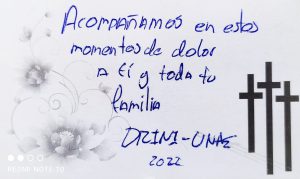 Acompañamos en estos
momentos de dolor
a tí y toda tu
familia
DRINI-UNAE
2022
REDMI NOTE 10